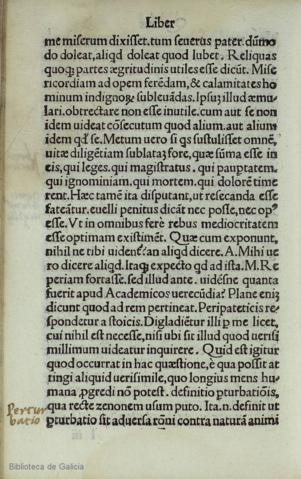 Liber
me miserum dixisset. tum seuerus pater. dũmo
do doleat, aliqd doleat quod lubet. Reliquas
quoq; partes ægritudinis utiles esse dicũt. Mise
ricordiam ad opem ferẽdam, & calamitates ho
minum indignoꝝ subleuãdas. Ipsuꝫ illud æmu
lari. obtrectare non esse inutile. cum aut se non
idem uideat cõsecutum quod alium. aut alium
idem qd se. Metum uero si qs sustulisset omnẽ.
uitæ diligẽtiam sublataꝫ fore, quæ sũma esse in
eis, qui leges. qui magistratus. qui pauptatem.
qui ignominiam. qui mortem. qui dolorẽ time
rent. Hæc tamẽ ita disputant, ut resecanda esse
fateãtur. euelli penitus dicãt nec posse, nec op⁹
esse. Vt in omnibus ferè rebus mediocritatem
esse optimam existimẽt. Quæ cum exponunt,
nihil ne tibi uident' an aliqd dicere. A. Mihi ue
ro dicere aliqd. Itaq; expecto qd ad ista. M. Re
periam fortasse. sed illud ante. uidésne quanta
fuerit apud Academicos uerecũdia? Plane eniꝫ
dicunt quod ad rem pertineat. Peripateticis re
spondetur a stoicis. Digladiẽtur illi p me licet,
cui nihil est necesse, nisi ubi sit illud quod uerisi
millimum uideatur inquirere. Quid est igitur
quod occurrat in hac quæstione, è qua possit at
tingi aliquid uerisimile, quo longius mens hu
mana pgredi nõ potest. definitio pturbatiõis,
qua recte zenonem usum puto. Ita. n. definit ut
pturbatio sit aduersa rõni contra naturã animi
Pertur
batio
Biblioteca de Galicia